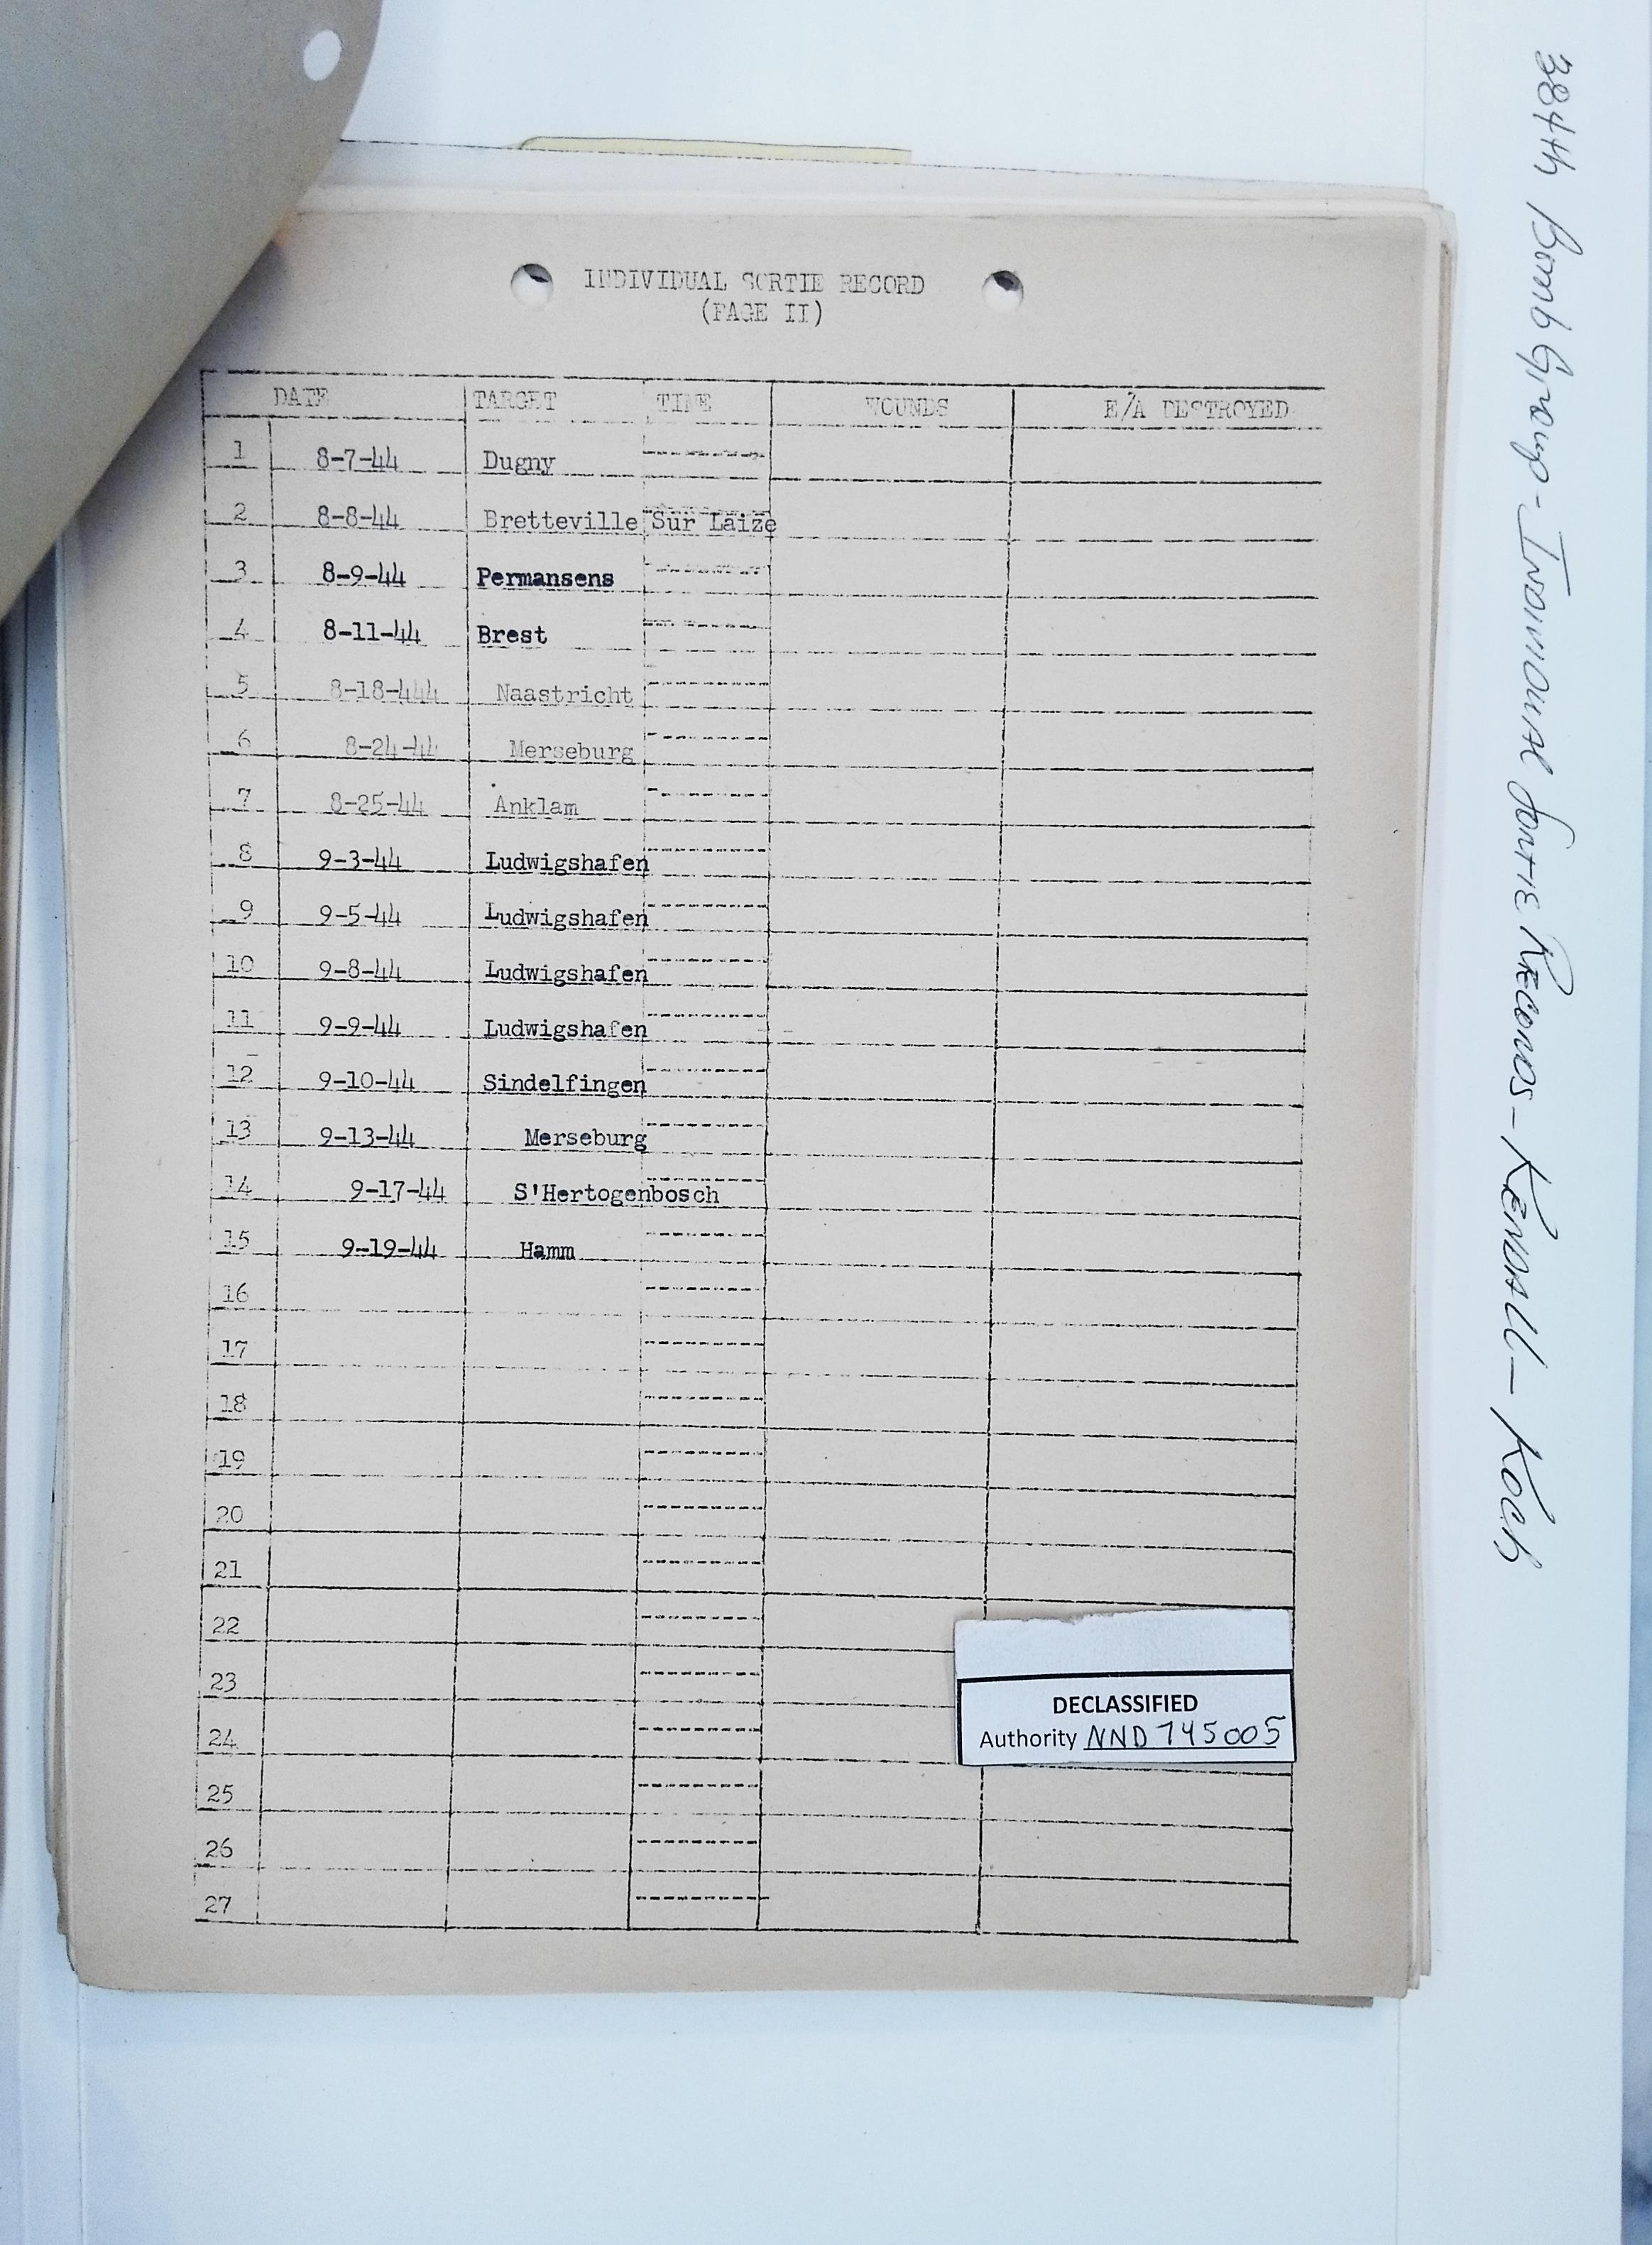 INDIVIDUAL SORTIE RECORD
(PAGE II)
DATE TARGET TIME WOUNDS E/A DESTROYED
1 8-7-44 Dugny
2 8-8-44 Bretteville Sur Laize
3 8-9-44 Permansens
4 8-11-44 Brest
5 8-18-444 Naastricht
6 8-24-44 Merseburg
7 8-25-44 Anklam
8 9-3-44 Ludwigshafen
9 9-5-44 Ludwigshafen
10 9-8-44 Ludwigshafen
11 9-9-44 Ludwigshafen
12 9-10-44 Sindelfingen
13 9-13-44 Merseburg
14 9-17-44 S'Hertogenbosch
15 9-19-44 Hamm
16
17
18
19
20
21
22
23
24
25
26
27
DECLASSIFIED
Authority NND 745005
384th Bomb Group - Individual Sortie Records - Kendall - Koch